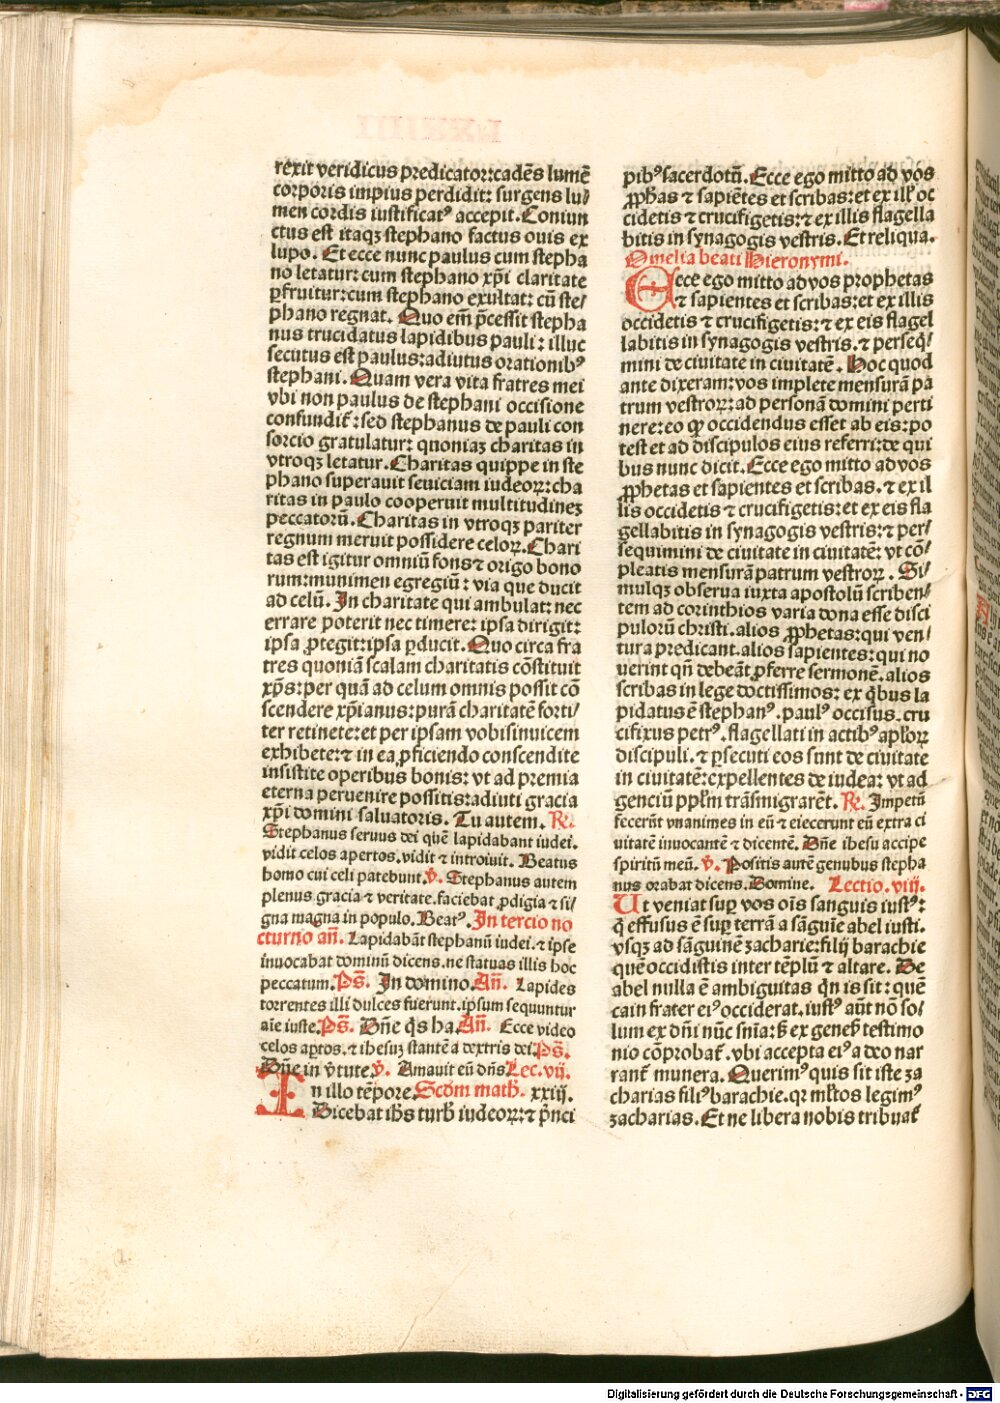 rexit veridicus predicator: cadēs lumē
corporis impius perdidit: surgens lu/
men cordis iustificatꝰ accepit. Coniun
ctus est itaqꝫ stephano factus ouis ex
lupo. Et ecce nunc paulus cum stepha
no letatur: cum stephano xp̄i claritate
ꝑfruitur: cum stephano exultat: cū ste/
phano regnat. Quo em̄ p̄cessit stepha
nus trucidatus lapidibus pauli: illuc
secutus est paulus: adiutus orationibꝰ
stephani. Quam vera vita fratres mei
vbi non paulus de stephani occisione
confundit᷑: sed stephanus de pauli con
sorcio gratulatur: qnoniaꝫ charitas in
vtroqꝫ letatur. Charitas quippe in ste
phano superauit seuiciam iudeoꝝ: cha
ritas in paulo cooperuit multitudineꝫ
peccatorū. Charitas in vtroqꝫ pariter
regnum meruit possidere celoꝝ. Chari
tas est igitur omniū fons ⁊ origo bono
rum: munimen egregiū: via que ducit
ad celū. In charitate qui ambulat: nec
errare poterit nec timere: ipsa dirigit:
ipsa ꝓtegit: ipsa ꝑducit. Quo circa fra
tres quoniā scalam charitatis cōstituit
xp̄s: per quā ad celum omnis possit cō
scendere xp̄ianus: purā charitatē forti/
ter retinete: et per ipsam vobisinuicem
exhibete: ⁊ in ea ꝓficiendo conscendite
insistite operibus bonis: vt ad premia
eterna peruenire possitis: adiuti gracia
xp̄i domini saluatoris. Tu autem. ℟.
Stephanus seruus dei quē lapidabant iudei.
vidit celos apertos. vidit ⁊ introiuit. Beatus
homo cui celi patebunt. ℣. Stephanus autem
plenus gracia ⁊ veritate. faciebat ꝓdigia ⁊ si/
gna magna in populo. Beatꝰ. In tercio no
cturno an̄. Lapidabāt stephanū iudei. ⁊ ipse
inuocabat dominū dicens. ne statuas illis hoc
peccatum. Ps̄. In domino. An̄. Lapides
torrentes illi dulces fuerunt. ipsum sequuntur
aīe iuste. Ps̄. Dn̄e q̇s ha. An̄. Ecce video
celos aꝑtos. ⁊ ihesuꝫ stantē a dextris dei. Ps̄.
Dn̄e in v̓tute ℣. Amauit eū dn̄s Lec. vij.
In illo tēpore. Scdm̄ math̄. xxiij.
Dicebat ih̄s turb̓ iudeoꝝ: ⁊ p̄nci
pibꝰ sacerdotū. Ecce ego mitto ad vos
ꝓphas ⁊ sapiētes et scribas: et ex ill̓ oc
cidetis ⁊ crucifigetis: ⁊ ex illis flagella
bitis in synagogis vestris. Et reliqua.
Omelia beati Hieronymi.
Ecce ego mitto ad vos prophetas
⁊ sapientes et scribas: et ex illis
occidetis ⁊ crucifigetis: ⁊ ex eis flagel
labitis in synagogis vestris. ⁊ perseq̇/
mini de ciuitate in ciuitatē. Hoc quod
ante dixeram: vos implete mensurā pa
trum vestroꝝ: ad personā domini perti
nere: eo ꝙ occidendus esset ab eis: po
test et ad discipulos eius referri: de qui
bus nunc dicit. Ecce ego mitto ad vos
ꝓphetas et sapientes et scribas. ⁊ ex il
lis occidetis ⁊ crucifigetis: et ex eis fla
gellabitis in synagogis vestris: ⁊ per/
sequimini de ciuitate in ciuitatē: vt cō/
pleatis mensurā patrum vestroꝝ. Si/
mulqꝫ obserua iuxta apostolū scriben/
tem ad corinthios varia dona esse disci
pulorū christi. alios ꝓphetas: qui ven/
tura predicant. alios sapientes: qui no
uerint qn̄ debeāt ꝓferre sermonē. alios
scribas in lege doctissimos: ex q̇bus la
pidatus ē stephanꝰ. paulꝰ occisus. cru
cifixus petrꝰ. flagellati in actibꝰ apl̓oꝝ
discipuli. ⁊ ꝑsecuti eos sunt de ciuitate
in ciuitatē: expellentes de iudea: vt ad
genciū ppl̓m trāsmigrarēt. ℟. Impetū
fecerūt vnanimes in eū ⁊ eiecerunt eū extra ci
uitatē inuocantē ⁊ dicentē. Dn̄e ihesu accipe
spiritū meū. ℣. Positis autē genubus stepha
nus orabat dicens. Domine. Lectio. viij.
Ut veniat suꝑ vos oīs sanguis iustꝰ:
q̇ effusus ē suꝑ terrā a sāguīe abel iusti.
vsqꝫ ad sāguinē zacharie: filij barachie
quē occidistis inter tēplū ⁊ altare. De
abel nulla ē ambiguitas qn̄ is sit: quē
cain frater eiꝰ occiderat. iustꝰ aūt nō so/
lum ex dn̄i nūc sn̄ia: sꝫ ex genes̓ testimo
nio cōprobat᷑. vbi accepta eiꝰ a deo nar
rant᷑ munera. Querimꝰ quis sit iste za
charias filiꝰ barachie. qꝛ ml̓tos legimꝰ
zacharias. Et ne libera nobis tribuat᷑